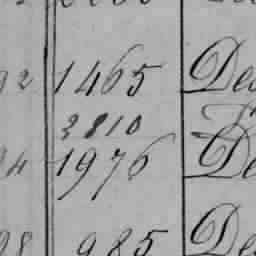 92 1465 Des
3810
94 1976 De
98 985 Des